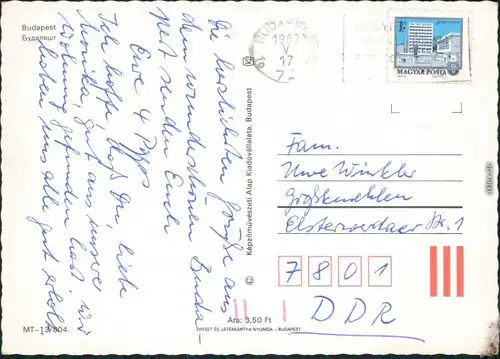 Budapest
Будапешт
Die herzlichsten Grüße aus
dem wunderschönen Buda-
pest senden Euch
Eure 4 Pipps
Ich hoffe, daß Du, liebe
Monika, gut aus unserer
Wohnung gefunden hast. Wir
haben uns alle gut erholt
MT-13/804
Ára: 3,50 Ft
OFFSET ÉS JÁTÉKKÁRTYA NYOMDA – BUDAPEST
© Képzőművészeti Alap Kiadóvállalata, Budapest
BUDAPEST
1987 V
17
1F
MAGYAR POSTA
Fam.
Uwe Winkler
Großkmehlen
Elsterwerdaer Str. 1
7801
DDR